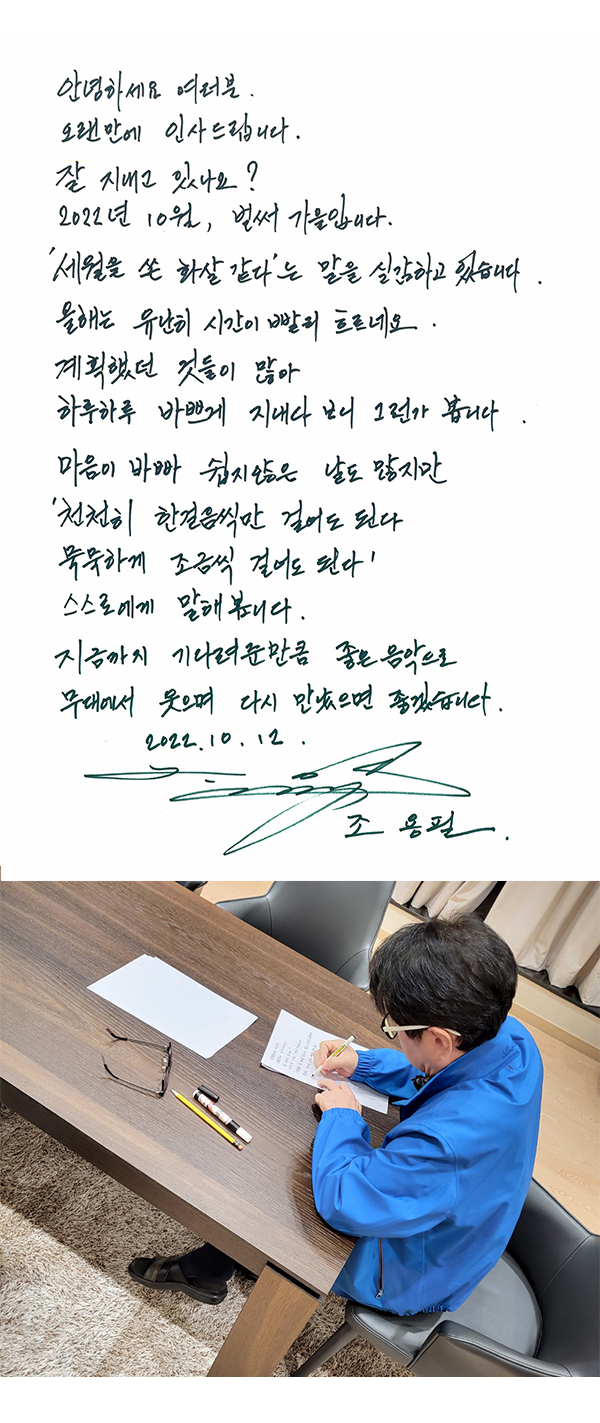 안녕하세요 여러분.
오랜만에 인사드립니다.
잘 지내고 있나요?
2022년 10월, 벌써 가을입니다.
'세월을 쏜 화살 같다'는 말을 실감하고 있습니다.
올해는 유난히 시간이 빨리 흐르네요.
계획했던 것들이 많아
하루하루 바쁘게 지내다 보니 그런가 봅니다.
마음이 바빠 쉽지않은 날도 많지만
'천천히 한걸음씩만 걸어도 된다
묵묵하게 조금씩 걸어도 된다'
스스로에게 말해봅니다.
지금까지 기다려준만큼 좋은 음악으로
무대에서 웃으며 다시 만났으면 좋겠습니다.
2022.10.12.
조용필.